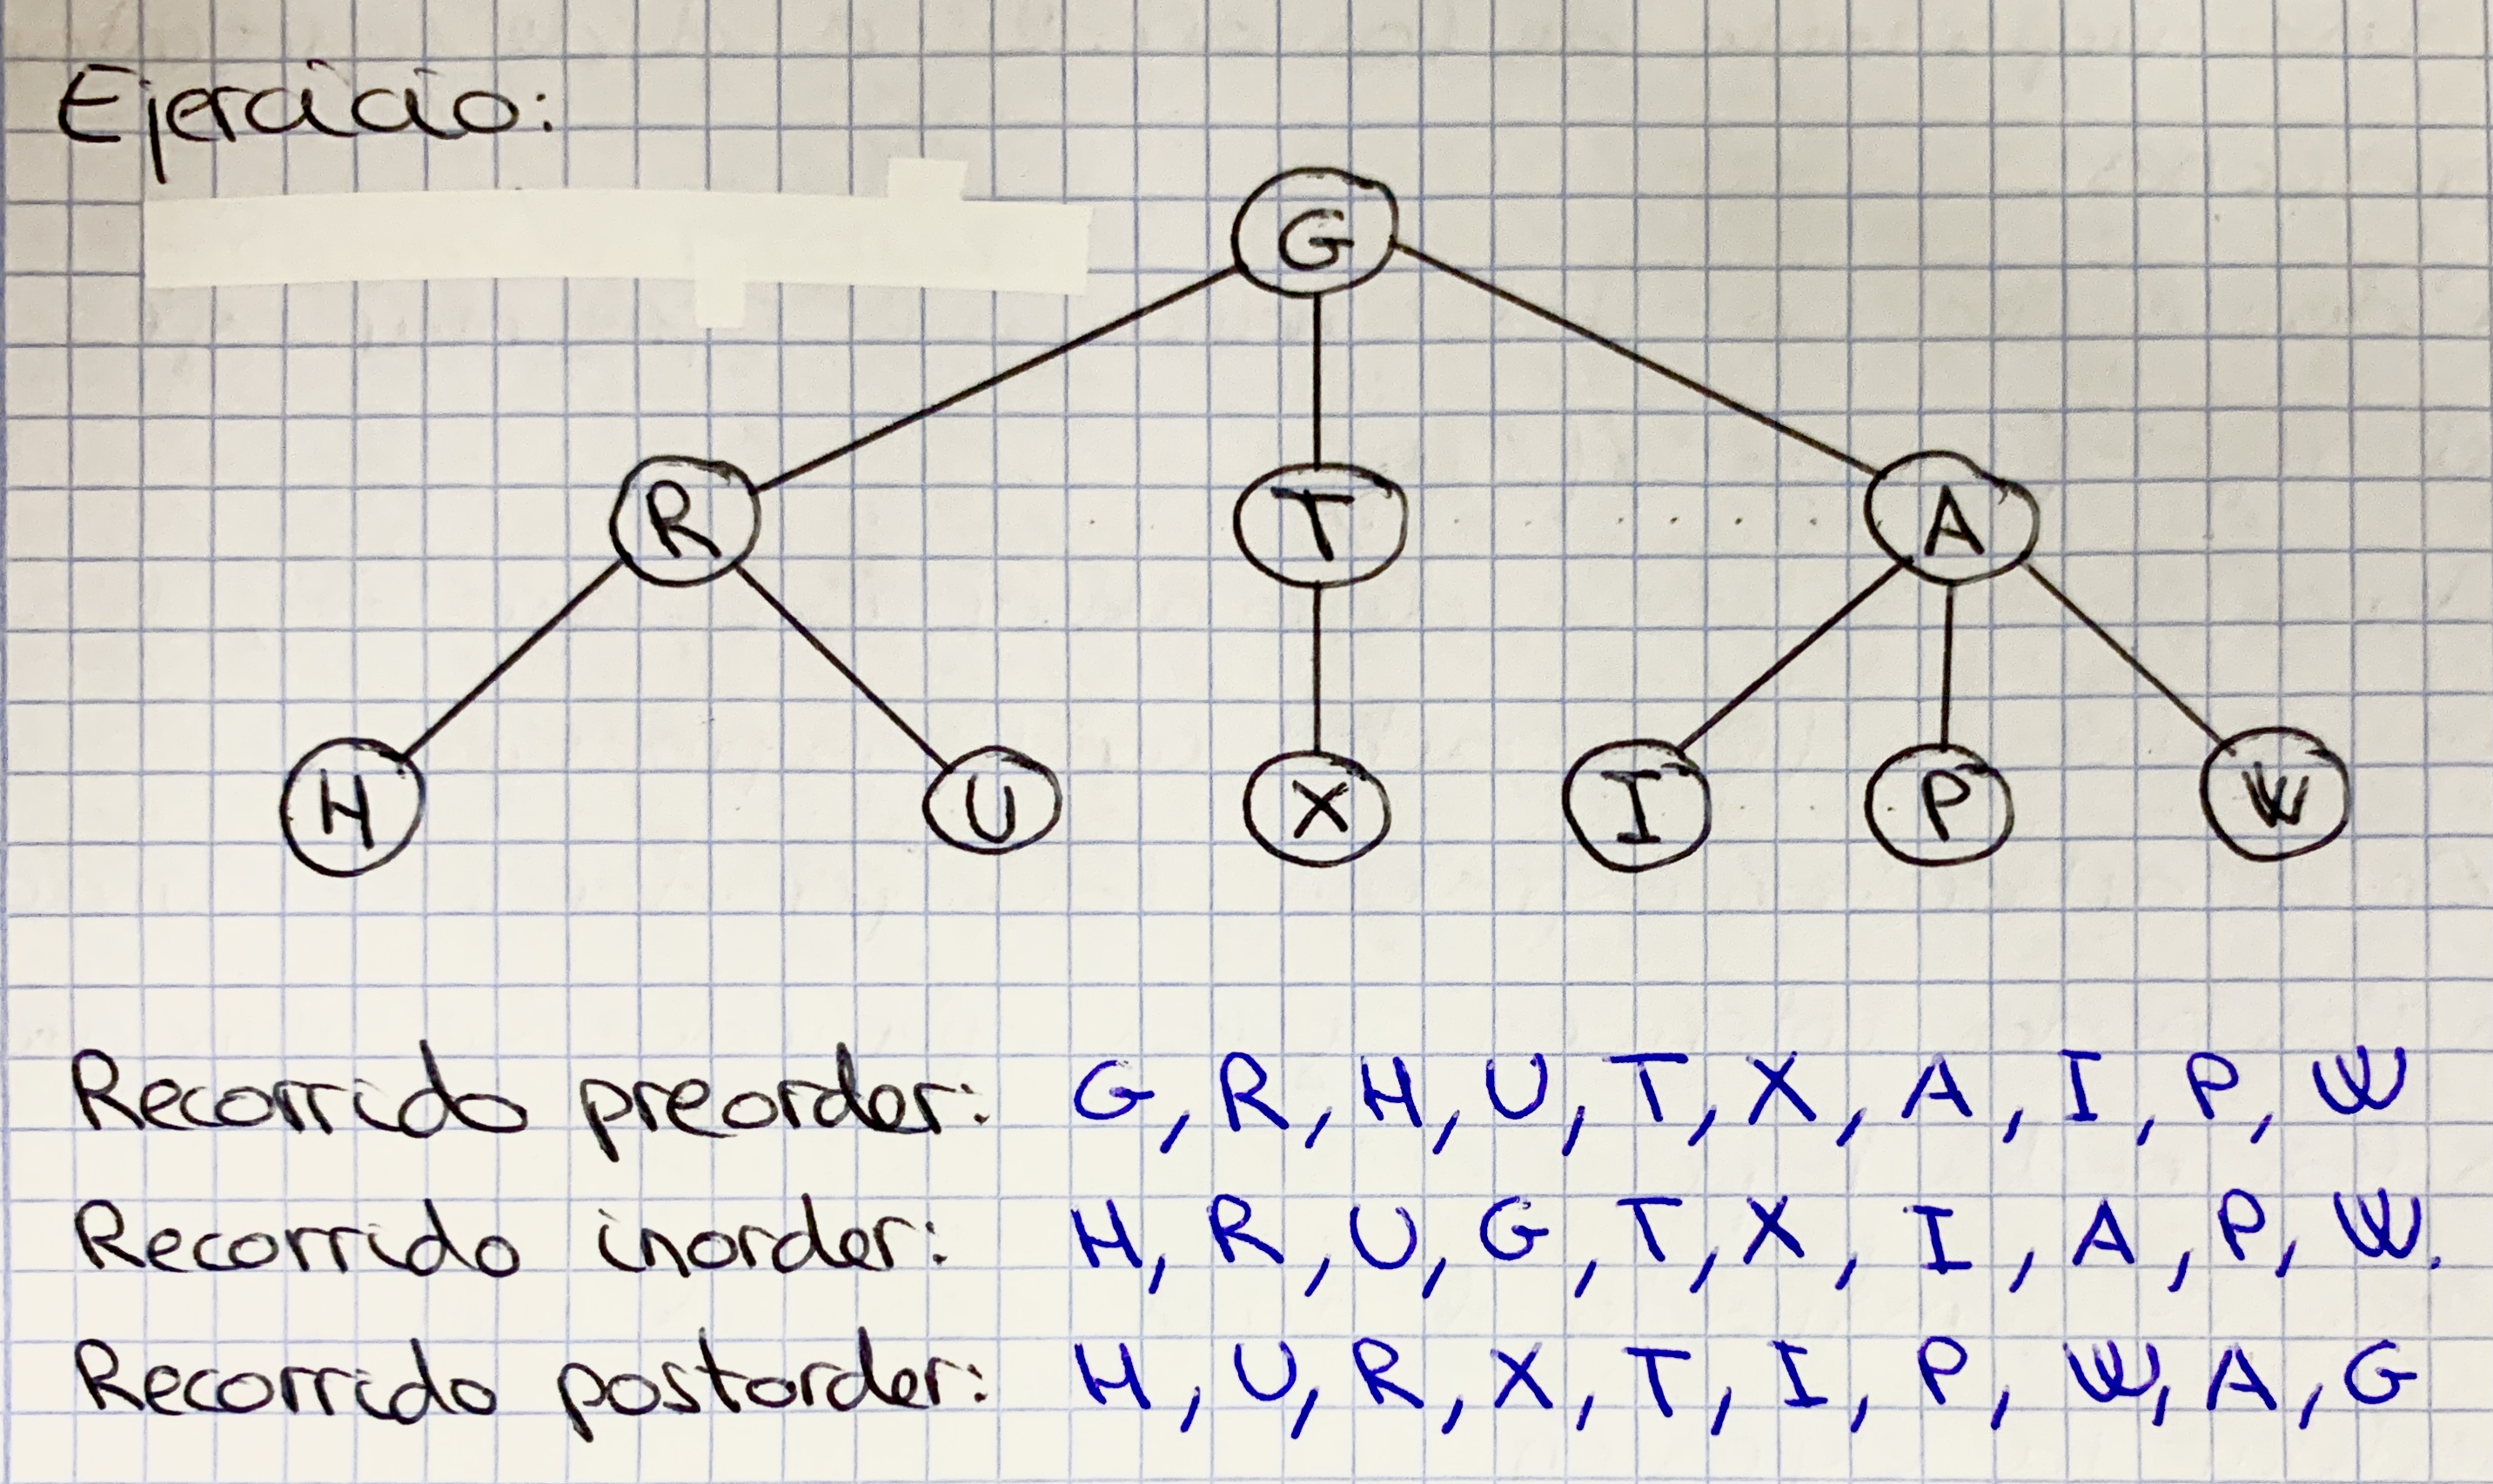 Ejercicio:
G
R T A
H U X I P W
Recorrido preorder: G, R, H, U, T, X, A, I, P, W
Recorrido inorder: H, R, U, G, T, X, I, A, P, W.
Recorrido postorder: H, U, R, X, T, I, P, W, A, G